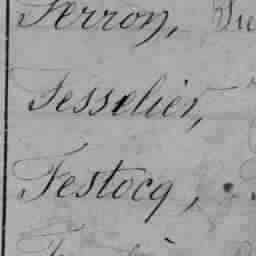 Ferron,
Fesselier,
Festocq,